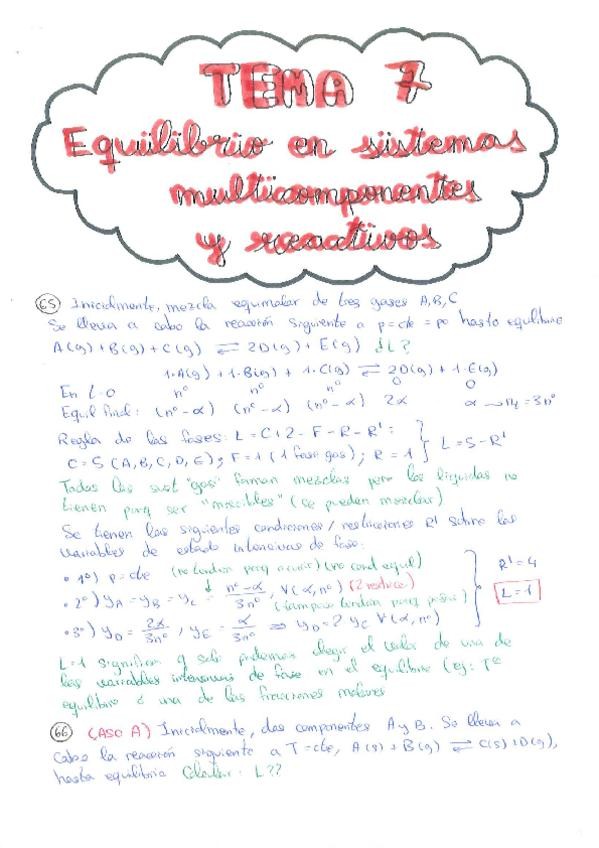 TEMA 7
Equilibrio en sistemas
multicomponentes
y reactivos
65 Inicialmente, mezcla equimolar de tres gases A, B, C
Se lleva a cabo la reacción siguiente a p=cte = p0 hasta equilibrio
A(g) + B(g) + C(g) ⇌ 2D(g) + E(g) ¿L?
1·A(g) + 1·B(g) + 1·C(g) ⇌ 2D(g) + 1·E(g)
En t=0 nº nº nº 0 0
Equil final: (nº-α) (nº-α) (nº-α) 2α α → nt = 3nº
Regla de las fases: L = C+2-F-R-R':
C=5 (A,B,C,D,E); F=1 (1 fase gas); R=1 } L=5-R'
Todas las sust "gas" forman mezclas pero los líquidos no
tienen porq ser "miscibles" (se pueden mezclar)
Se tienen las siguientes condiciones/restricciones R' sobre las
variables de estado intensivas de fase:
• 1º) p=cte (no tendría porq ocurrir) (no cond equil)
• 2º) yA = yB = yC = nº-α/3nº, ∀(α,nº) (2 reduce)
(tampoco tendría porq pasar)
• 3º) yD = 2α/3nº, yE = α/3nº ⇒ yD = 2 yE ∀(α,nº)
R'=4
L=1
L=1 significa q solo podemos elegir el valor de una de
las variables intensivas de fase en el equilibrio (ej: Tª
equilibrio o una de las fracciones molares
66 (CASO A) Inicialmente, dos componentes A y B. Se lleva a
cabo la reacción siguiente a T=cte, A(s) + B(g) ⇌ C(s)+D(g),
hasta equilibrio Calcular: L??